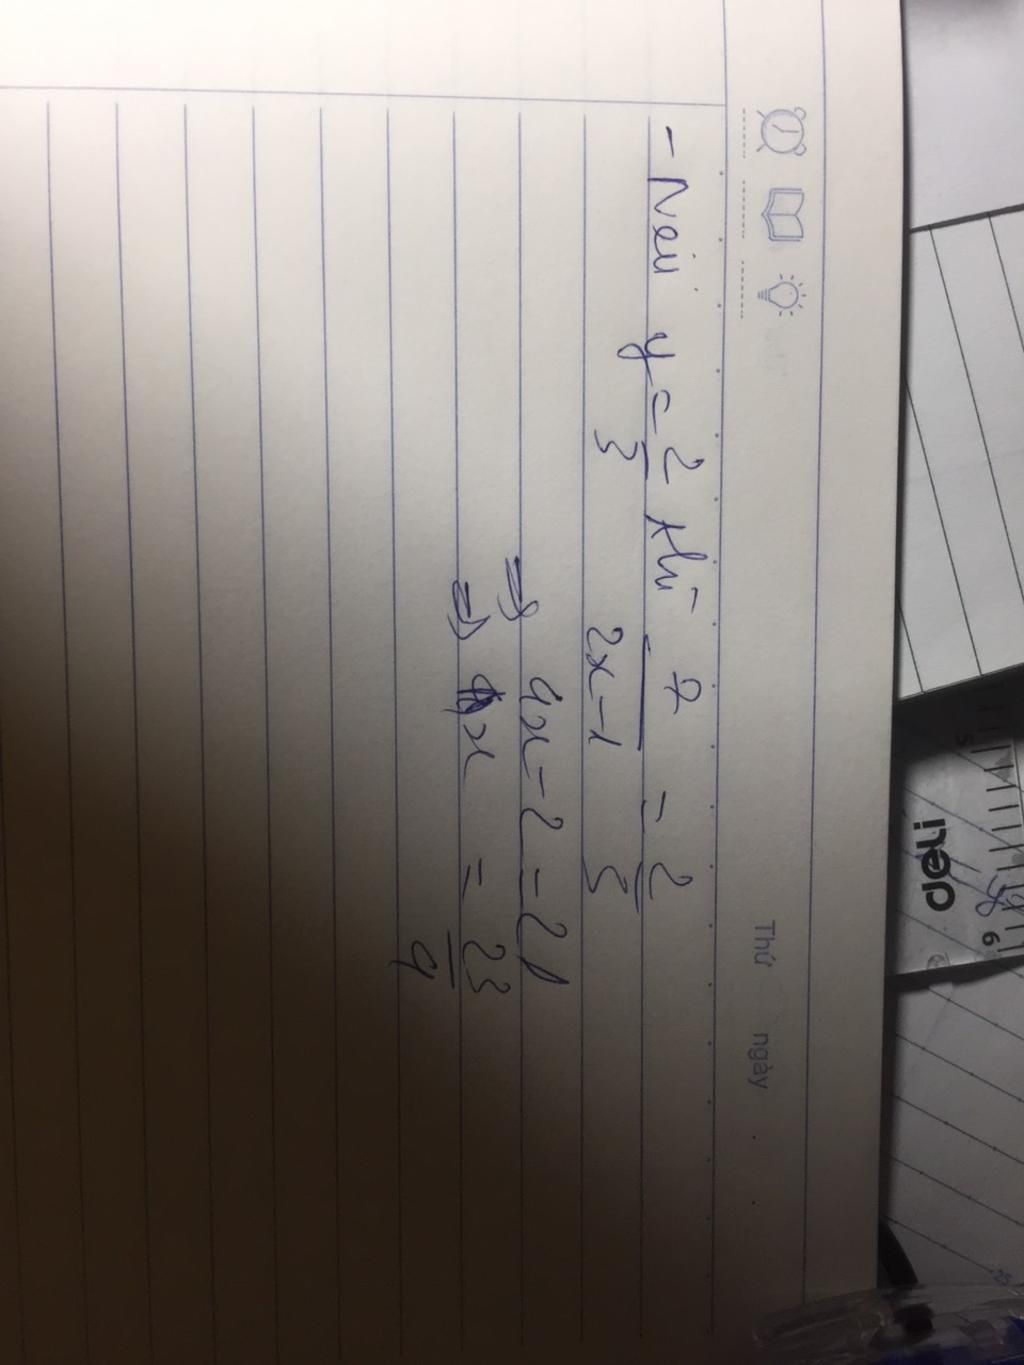 Thứ ngày
- Nếu y = 2/3 thì 7/(2x-1) = 2/3
=> 4x - 2 = 21
=> x = 23/4
deli
5 6
25